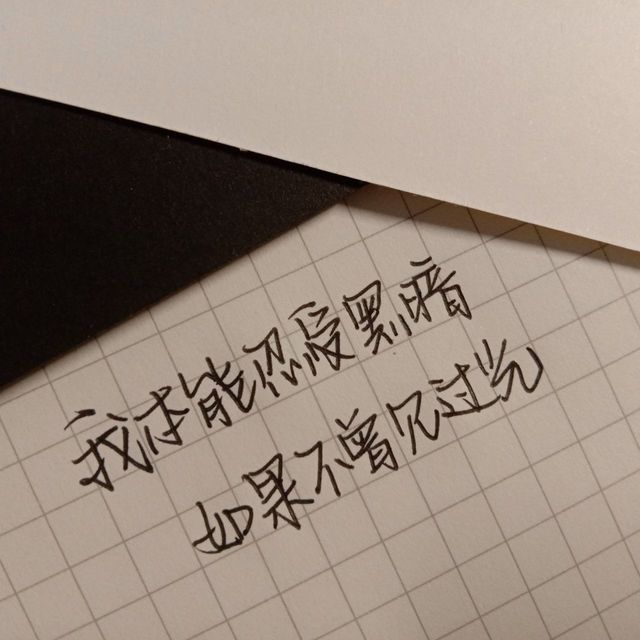 我本能忍受黑暗
如果不曾见过光